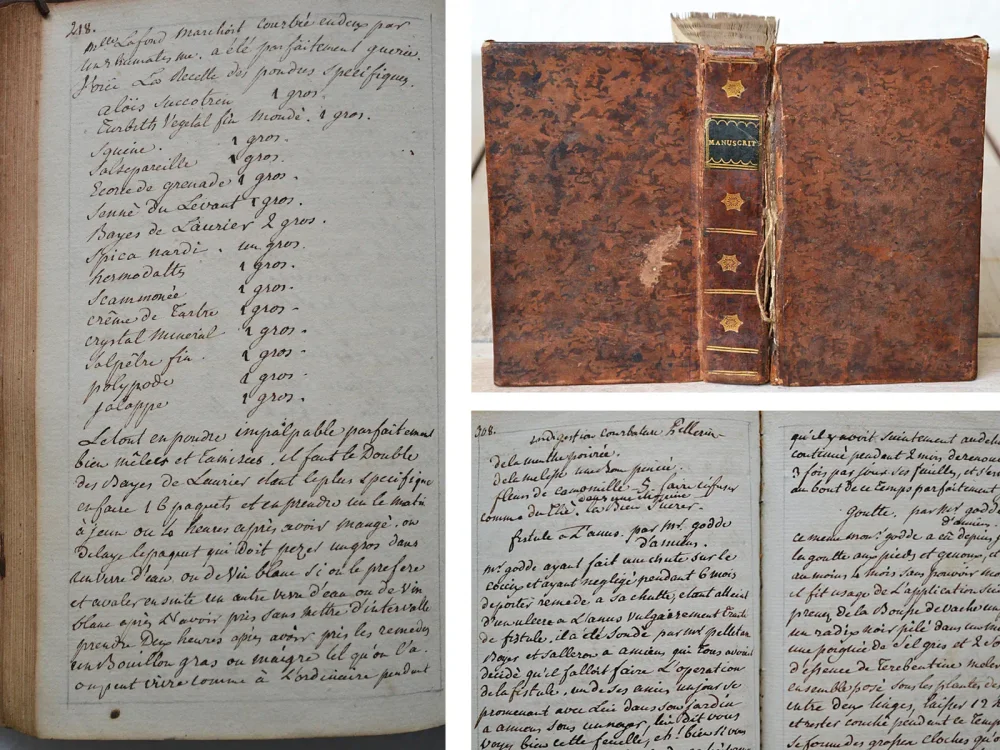 218.
Mlle Lafond marchoit courbée en deux par
un rhumatisme. a été parfaitement guerie.
Voici La Recette des poudres spécifiques.
aloës Succotrin 1 gros.
Turbith Vegetal fin mondé. 1 gros.
Squine. 1 gros.
Salsepareille 1 gros.
Ecorce de grenade 1 gros.
Senné Du Levant 1 gros.
Bayes de Laurier 2 gros.
Spica nardi. un gros.
hermodattes 1 gros.
Scammonée 1 gros.
crême de Tartre 1 gros.
crystal mineral 1 gros.
Salpêtre fin. 1 gros.
polypode 1 gros.
jalappe 1 gros.
Le tout en poudre impalpable parfaitement
bien mêlees et Tamisees. il faut le Double
des Bayes de Laurier étant le plus specifique
en faire 16 paquets et en prendre un le matin
à jeun ou 4 heures après avoir mangé. on
delaye le paquet qui doit pezer un gros dans
un verre d'eau ou de Vin blanc si on le prefere
et avaler ensuite un autre verre d'eau ou de Vin
blanc après L'avoir pris sans mettre d'intervalle
prendre Deux heures après avoir pris les remedes
un Bouillon gras ou maigre tel qu'on l'a.
on peut vivre comme à L'ordinaire pendant
MANUSCRIT
308.
indigestion courbature Pellerin
de la menthe poivrée.
de la melisse une bon pincée.
fleurs de camomille 5. faire infuser
dans une chopine
comme du Thé. la Bien Sucrer.
fistule a L'anus. par Mr. godde
d'amiens.
Mr. godde ayant fait une chute sur le
coccix et ayant negligé pendant 6 mois
d'eporter remede a sa chutte, étant atteint
d'un ulcere a L'anus vulgairement traité
de fistule, il a été Sondé par Mr pelletan
Boyer et Salleron a amiens qui tous avoient
décidé qu'il falloit faire L'operation
de la fistule. un de ses amis un jour se
promenant avec Lui dans son jardin
a amiens sous un noyer, lui dit vous
voyez bien cette feuille, eh! bien si vous
qu'il y avoit suintement
continué pendant 2 mois
3 fois par jour ses feuilles, et s'est
au bout de ce Temps parfaitement
goutte. par Mr godde
d'amiens.
ce meme Mons. godde a eu depuis
la goutte aux pieds et genoux, et
au moins 4 mois sans pouvoir
il fit usage de L'application
prenez de la Bouze de vache
un radix noir pilé dans un
une poignée de Sel gris et 2
d'essence de Terebentine
ensemble posé sous les plantes des
entre deux linges, laisser 12
et rester couché pendant ce Temps
Se forme des grosses cloches qu'on